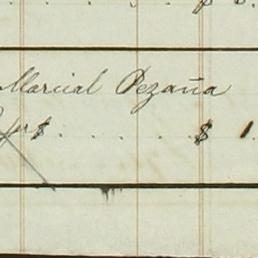 Marcial Pezaña
$ . . . . $ 1